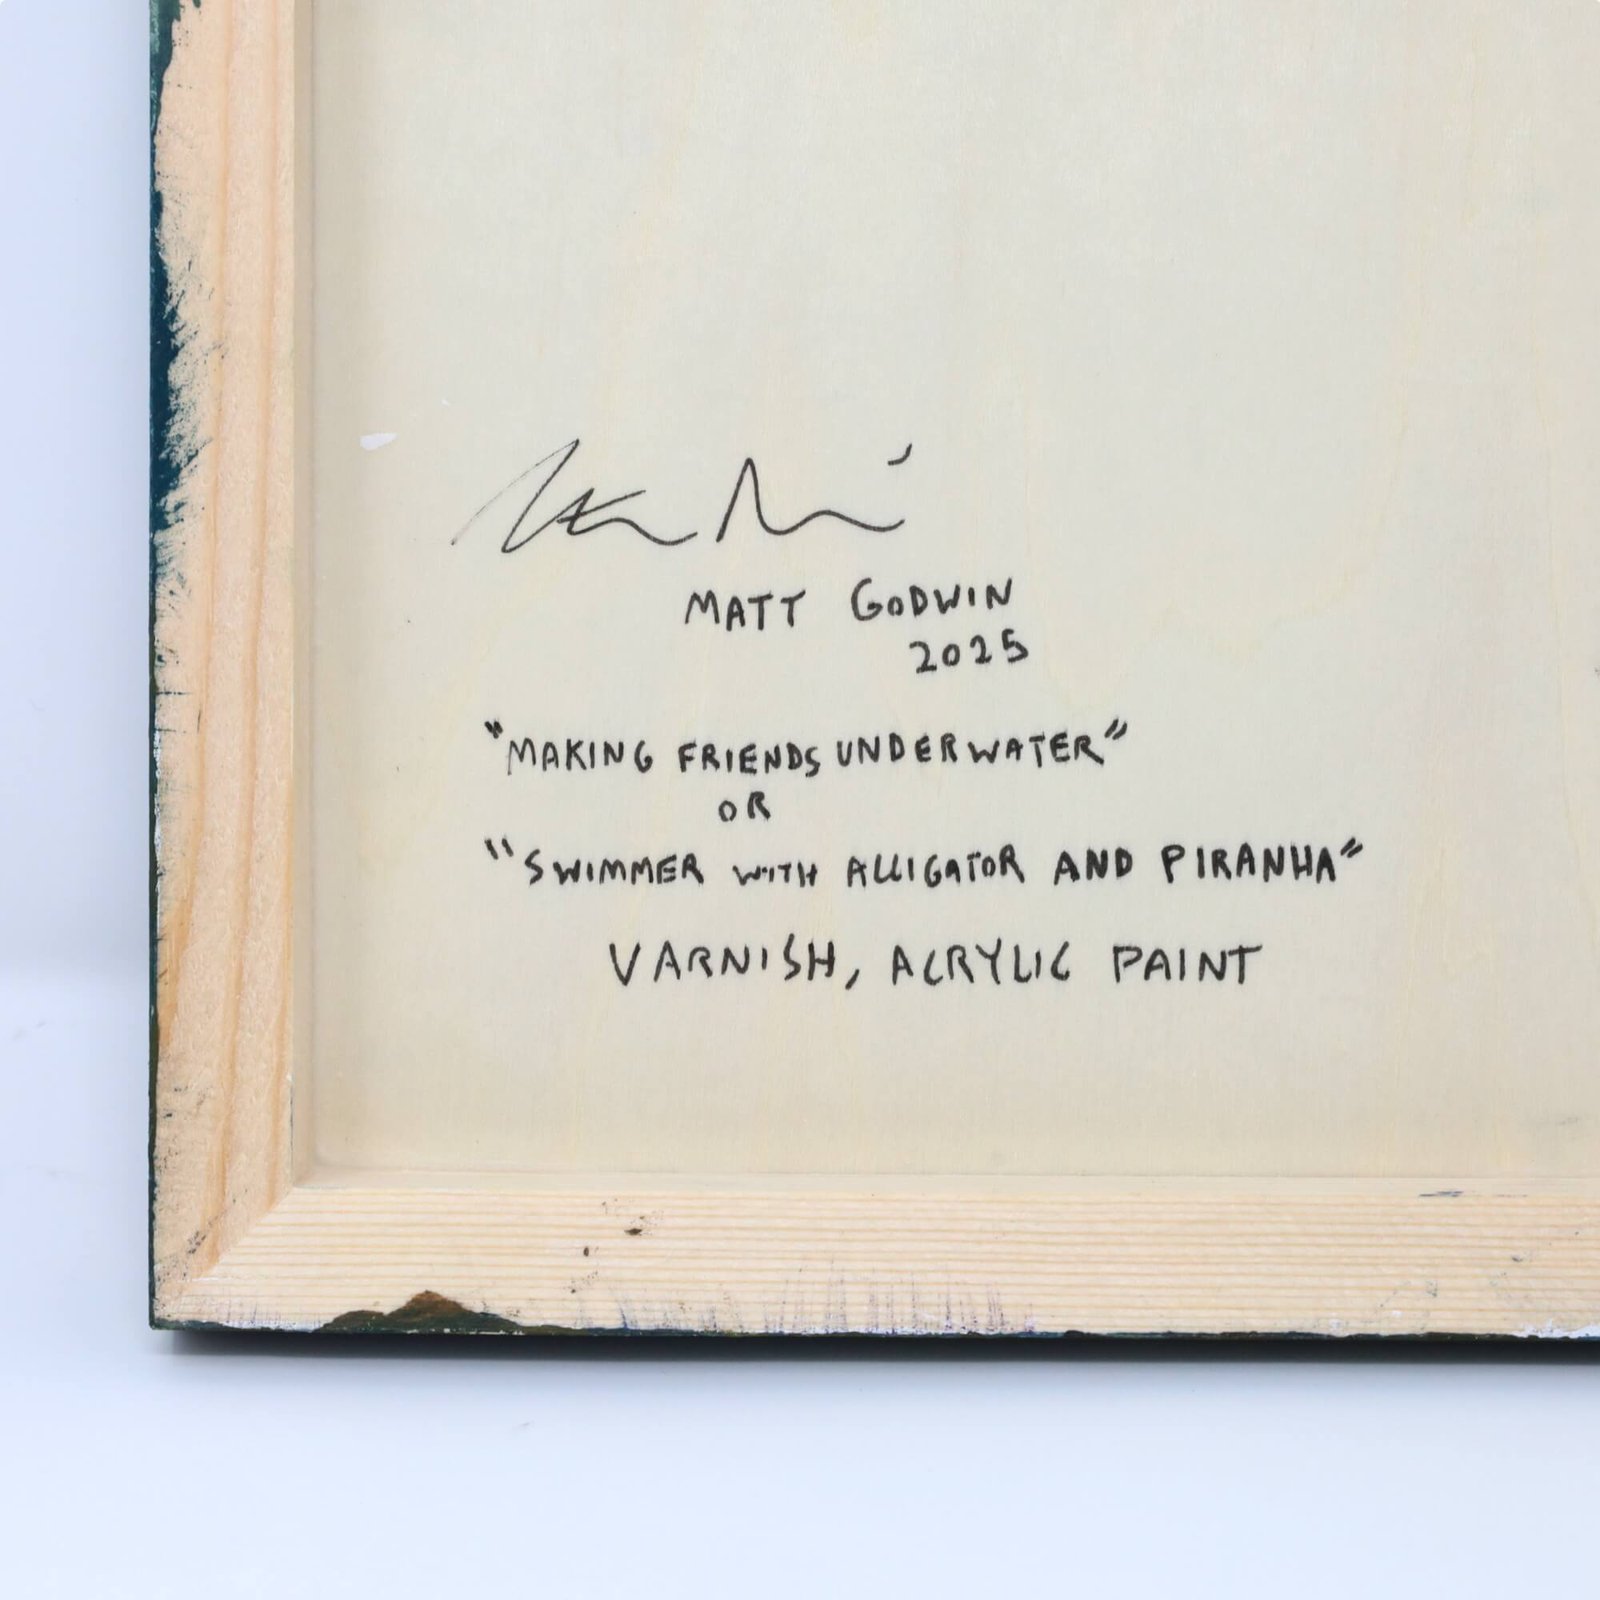 MATT GODWIN
2025
"MAKING FRIENDS UNDERWATER"
OR
"SWIMMER WITH ALLIGATOR AND PIRANHA"
VARNISH, ACRYLIC PAINT